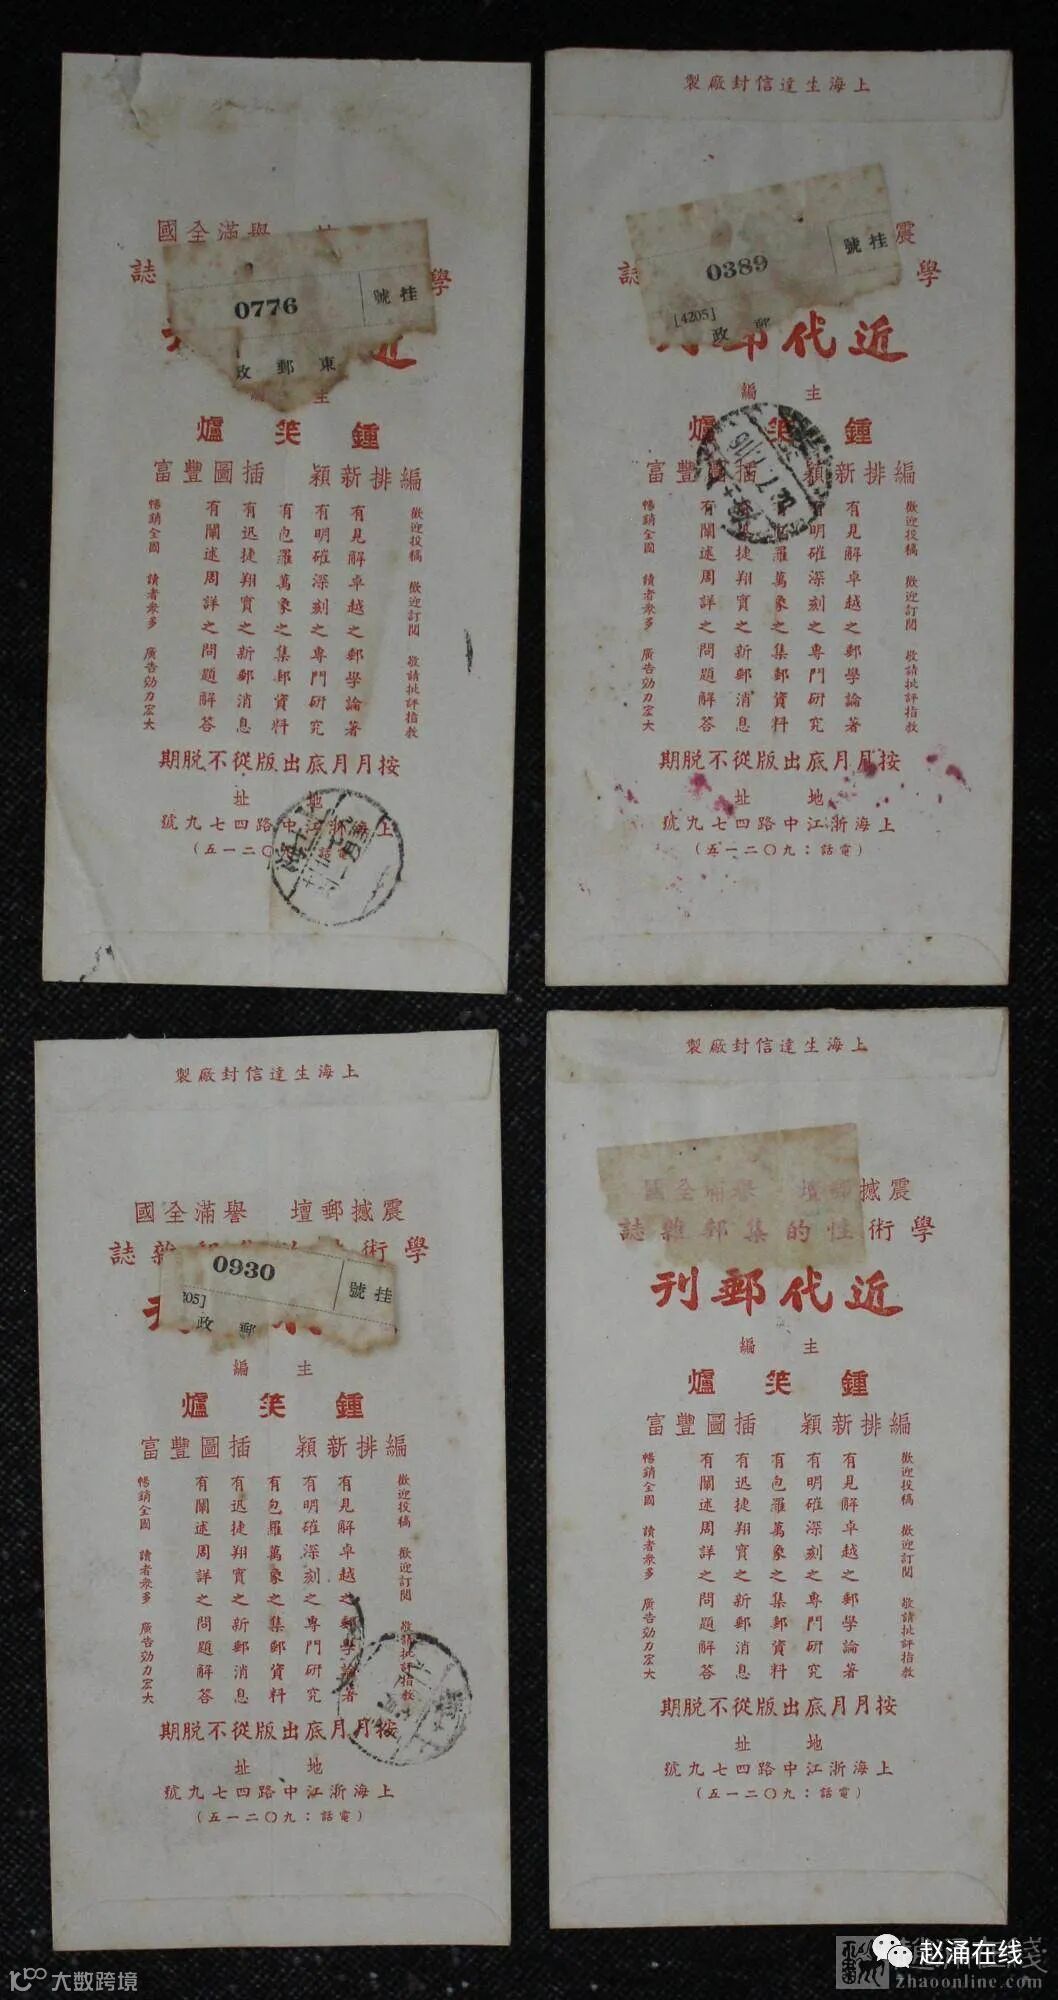 譽滿全國
學 誌
挂號
0776
東郵政
近 刊
主編
鍾笑爐
編排新穎 插圖豐富
歡迎投稿 歡迎訂閱 敬請批評指教
有見解卓越之郵學論著
有明確深刻之專門研究
有包羅萬象之集郵資料
有迅捷翔實之新郵消息
有闡述周詳之問題解答
暢銷全國 讀者衆多 廣告効力宏大
按月月底出版從不脫期
地址
上海浙江中路四七九號
(電話:九〇二一五)
上海生達信封廠製
震
學 誌
挂號
0389
[4205]
郵政
近代郵刊
主編
鍾笑爐
編排新穎 插圖豐富
歡迎投稿 歡迎訂閱 敬請批評指教
有見解卓越之郵學論著
有明確深刻之專門研究
有包羅萬象之集郵資料
有迅捷翔實之新郵消息
有闡述周詳之問題解答
暢銷全國 讀者衆多 廣告効力宏大
按月月底出版從不脫期
地址
上海浙江中路四七九號
(電話:九〇二一五)
上海生達信封廠製
震撼郵壇 譽滿全國
學術 雜誌
挂號
0930
205]
郵政
主編
鍾笑爐
編排新穎 插圖豐富
歡迎投稿 歡迎訂閱 敬請批評指教
有見解卓越之郵學論著
有明確深刻之專門研究
有包羅萬象之集郵資料
有迅捷翔實之新郵消息
有闡述周詳之問題解答
暢銷全國 讀者衆多 廣告効力宏大
按月月底出版從不脫期
地址
上海浙江中路四七九號
(電話:九〇二一五)
上海生達信封廠製
震撼郵壇 譽滿全國
學術性的集郵雜誌
近代郵刊
主編
鍾笑爐
編排新穎 插圖豐富
歡迎投稿 歡迎訂閱 敬請批評指教
有見解卓越之郵學論著
有明確深刻之專門研究
有包羅萬象之集郵資料
有迅捷翔實之新郵消息
有闡述周詳之問題解答
暢銷全國 讀者衆多 廣告効力宏大
按月月底出版從不脫期
地址
上海浙江中路四七九號
(電話:九〇二一五)
大数跨境
赵涌在线
zhaoonline.com